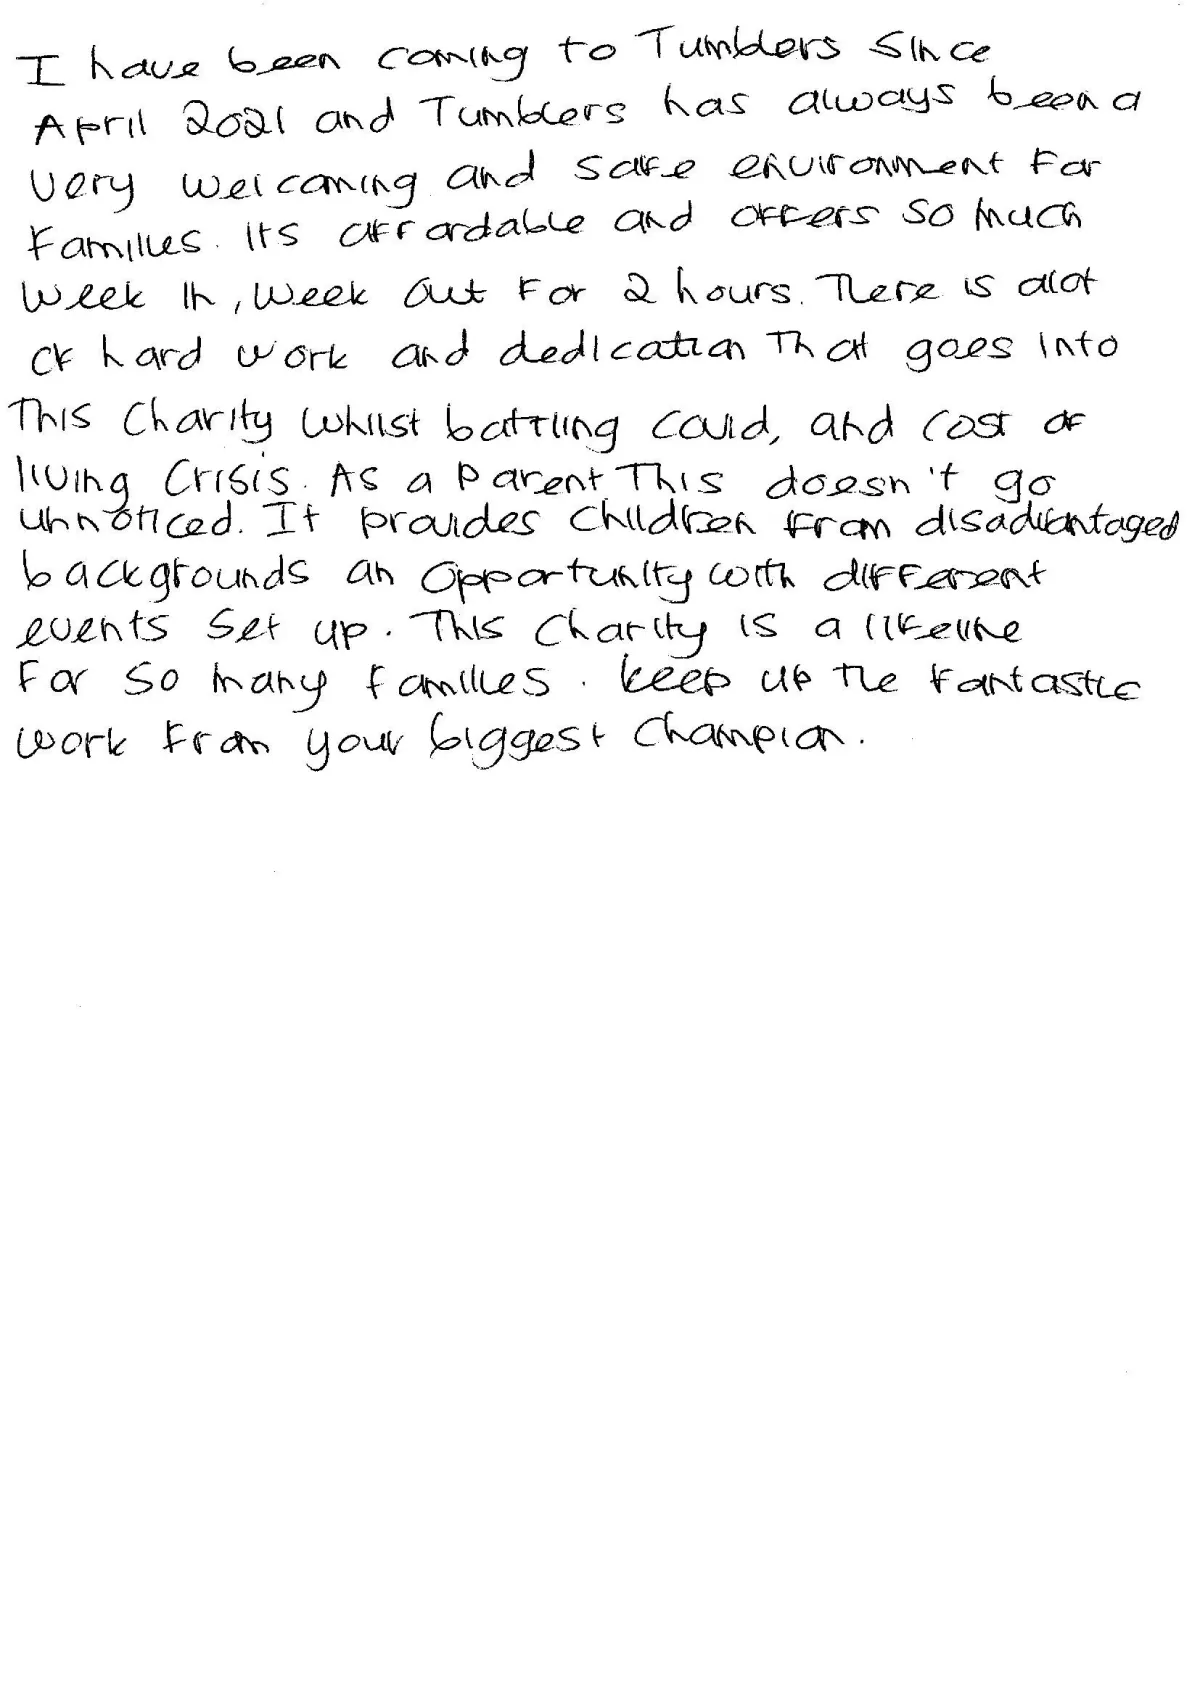 I have been coming to Tumblers since
April 2021 and Tumblers has always been a
very welcoming and safe environment for
families. Its affordable and offers so much
week in, week out for 2 hours. There is alot
of hard work and dedication that goes into
This charity whilst battling covid, and cost of
living crisis. As a parent This doesn't go
unnoticed. It provides children from disadvantaged
backgrounds an opportunity with different
events set up. This charity is a lifeline
for so many families. keep up the fantastic
work from your biggest champion.